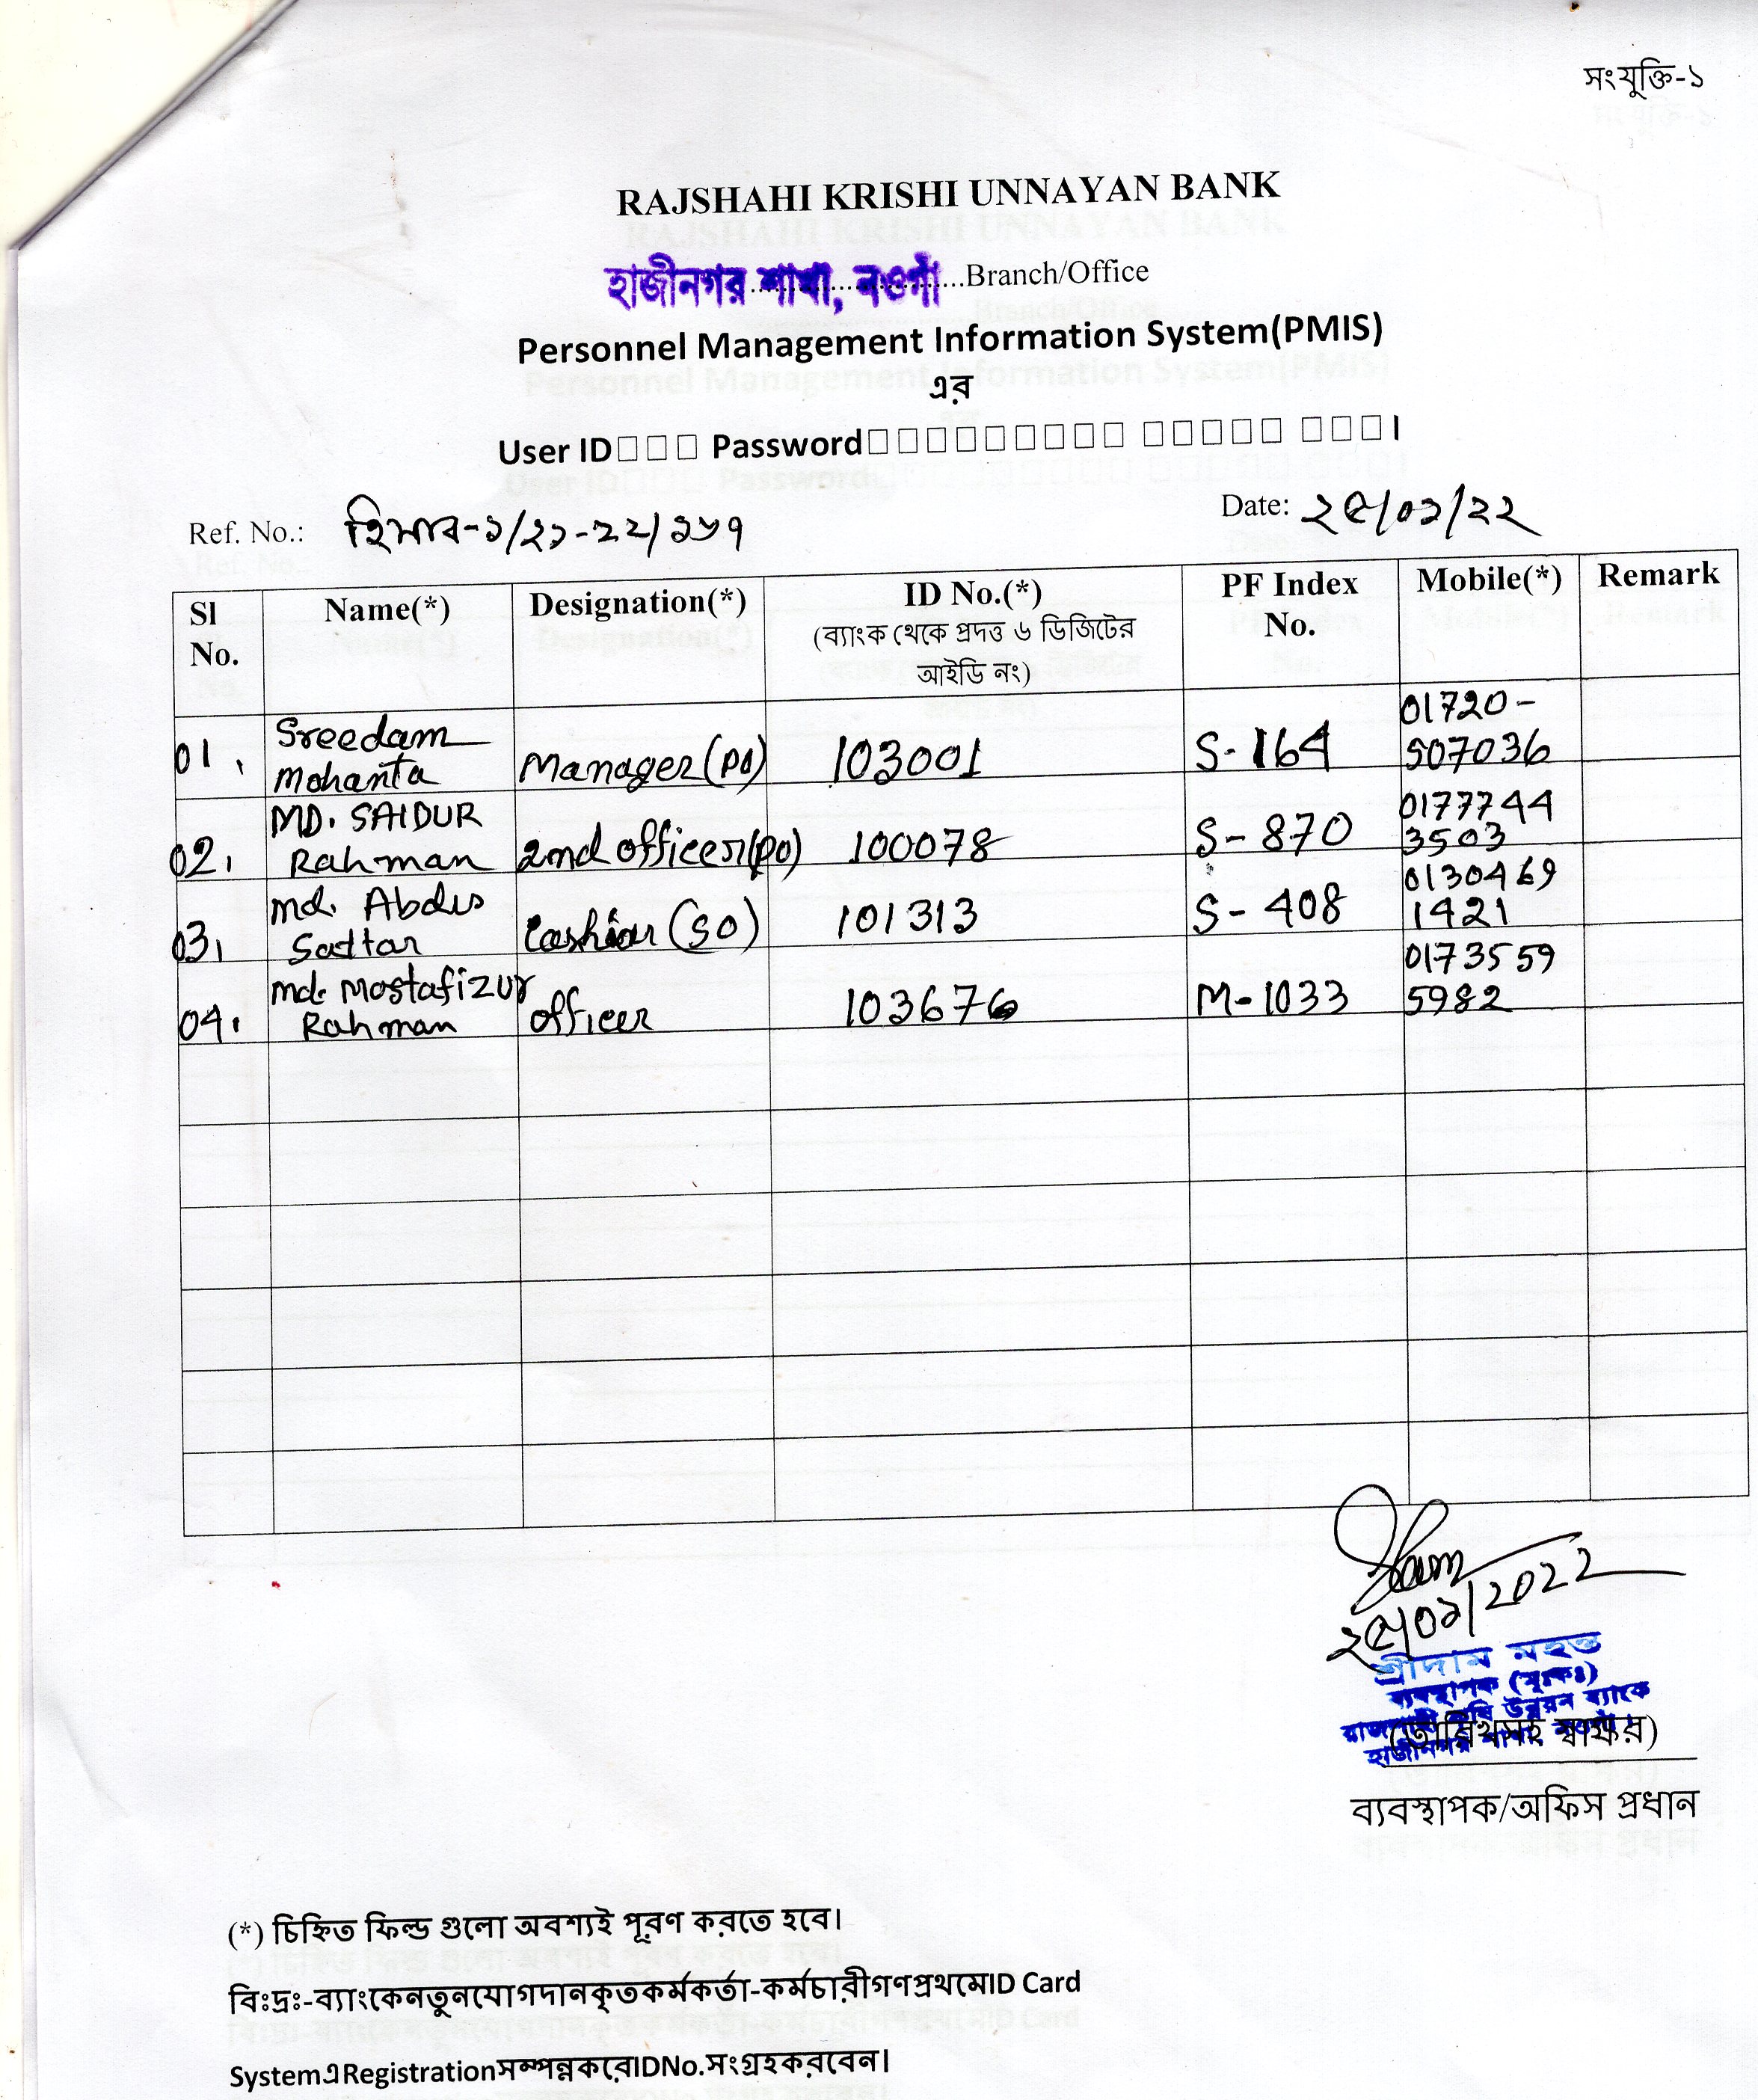 সংযুক্তি-১
RAJSHAHI KRISHI UNNAYAN BANK
হাজীনগর শাখা, নওগাঁ ....................Branch/Office
Personnel Management Information System(PMIS)
এর
User ID□□□ Password□□□□□□□□□ □□□□□ □□□।
Ref. No.: হিসাব-১/২১-২২/১৬৭
Date: ২৫/০১/২২
Sl No. Name(*) Designation(*) ID No.(*) (ব্যাংক থেকে প্রদত্ত ৬ ডিজিটের আইডি নং) PF Index No. Mobile(*) Remark
01. Sreedam Mohanta Manager (PO) 103001 S-164 01720-507036
02. MD. SAIDUR Rahman 2nd officer (PO) 100078 S-870 0177744 3503
03. Md. Abdus Sattar Cashier (SO) 101313 S-408 0130469 1421
04. Md. Mostafizur Rahman officer 103676 M-1033 0173559 5982
২৫/০১/2022
শ্রীদাম মহন্ত
ব্যবস্থাপক (মূঃকঃ)
রাজশাহী কৃষি উন্নয়ন ব্যাংক
হাজীনগর শাখা, নওগাঁ।
(তারিখসহ স্বাক্ষর)
ব্যবস্থাপক/অফিস প্রধান
(*) চিহ্নিত ফিল্ড গুলো অবশ্যই পূরণ করতে হবে।
বিঃদ্রঃ-ব্যাংকেনতুনযোগদানকৃতকর্মকর্তা-কর্মচারীগণপ্রথমেID Card
SystemএRegistrationসম্পন্নকরেIDNo.সংগ্রহকরবেন।